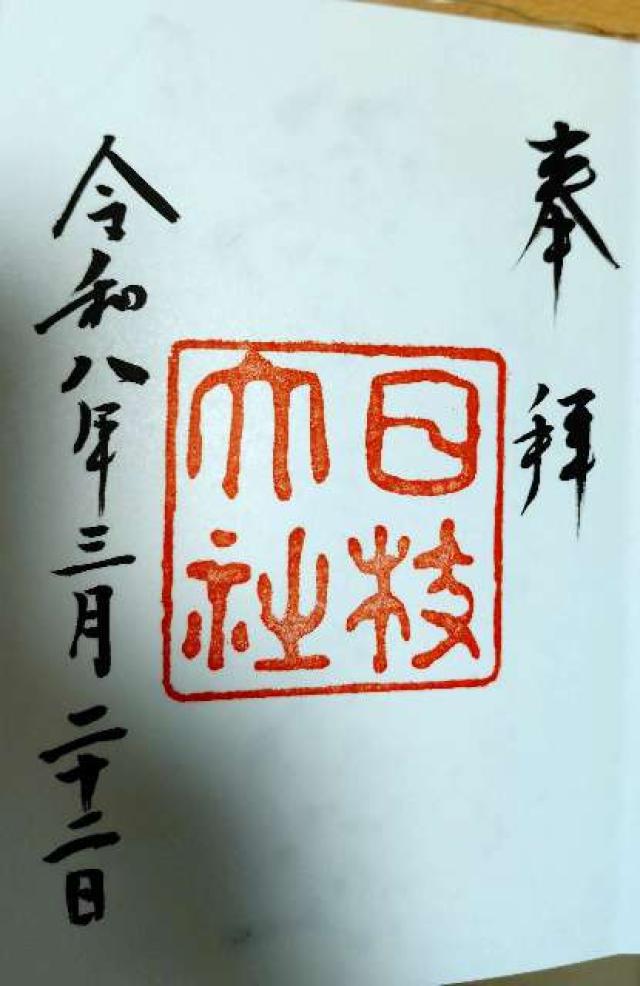 奉拝
日枝
大社
令和八年三月二十二日